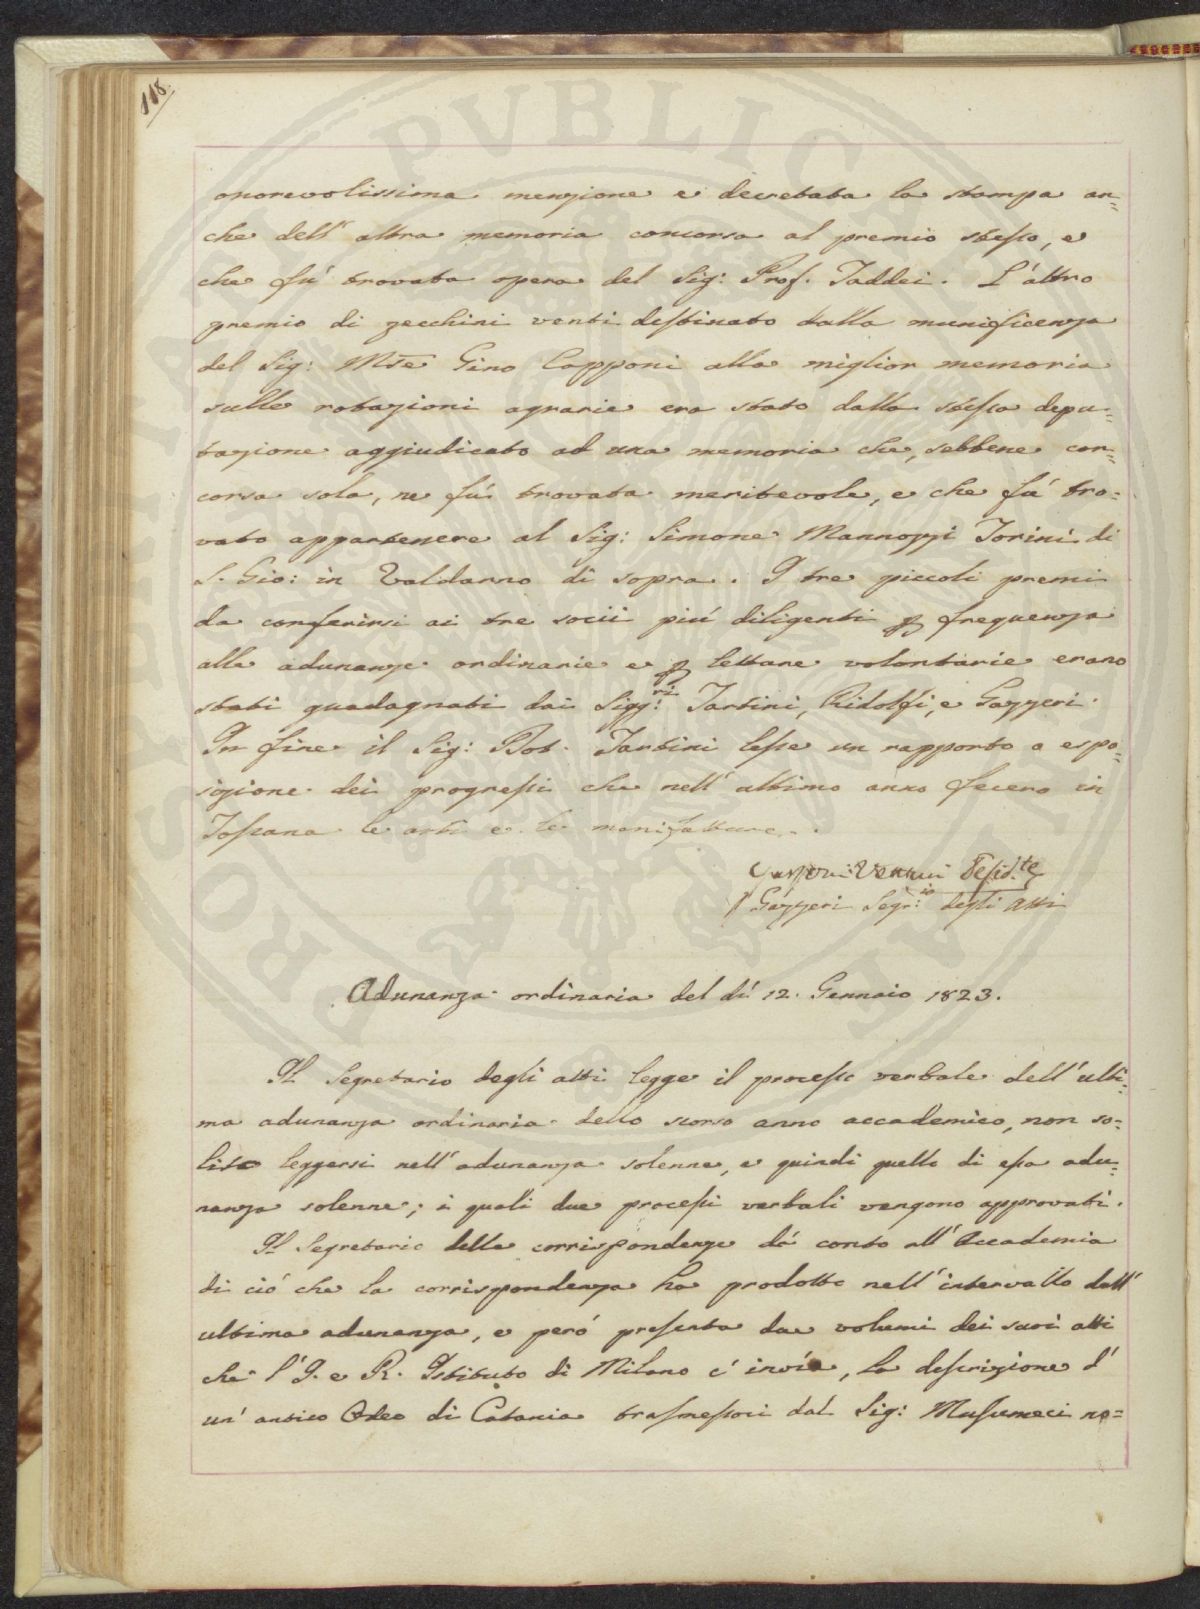 118.
onorevolissima menzione e decretata la stampa an=
che dell'altra memoria concorsa al premio stesso, e
che fú trovata opera del Sig: Prof. Taddei. L'altro
premio di zecchini venti destinato dalla munificenza
del Sig: Mse Gino Capponi alla miglior memoria
sulle rotazioni agrarie era stato dalla stessa depu=
tazione aggiudicato ad una memoria che, sebbene con=
corsa sola, ne fú trovata meritevole, e che fú tro=
vato appartenere al Sig: Simone Mannozzi Torini di
S. Gio: in Valdarno di sopra. I tre piccoli premi
da conferirsi ai tre socii piú diligenti p frequenza
alle adunanze ordinarie e p letture volontarie erano
stati guadagnati dai Sigg:ri Tartini, Ridolfi, e Gazzeri.
In fine il Sig: Dot. Tartini lesse un rapporto o espo=
sizione dei progressi che nell'ultimo anno fecero in
Toscana le arti e le manifatture.
Vettori Presid.te
Gazzeri Segr:io degli Atti
Adunanza ordinaria del dí 12. Gennaio 1823.
Il Segretario degli atti legge il processo verbale dell'ulti=
ma adunanza ordinaria dello scorso anno accademico, non so=
lito leggersi nell'adunanza solenne, e quindi quello di essa adu=
nanza solenne; i quali due processi verbali vengono approvati.
Il Segretario delle corrispondenze dá conto all'Accademia
di ció che la corrispondenza ha prodotto nell'intervallo dall'
ultima adunanza, e peró presenta due volumi dei suoi atti
che l'I. e R. Istituto di Milano c'invía, la descrizione d'
un'antico Odeo di Catania trasmessoci dal Sig: Musumeci no=